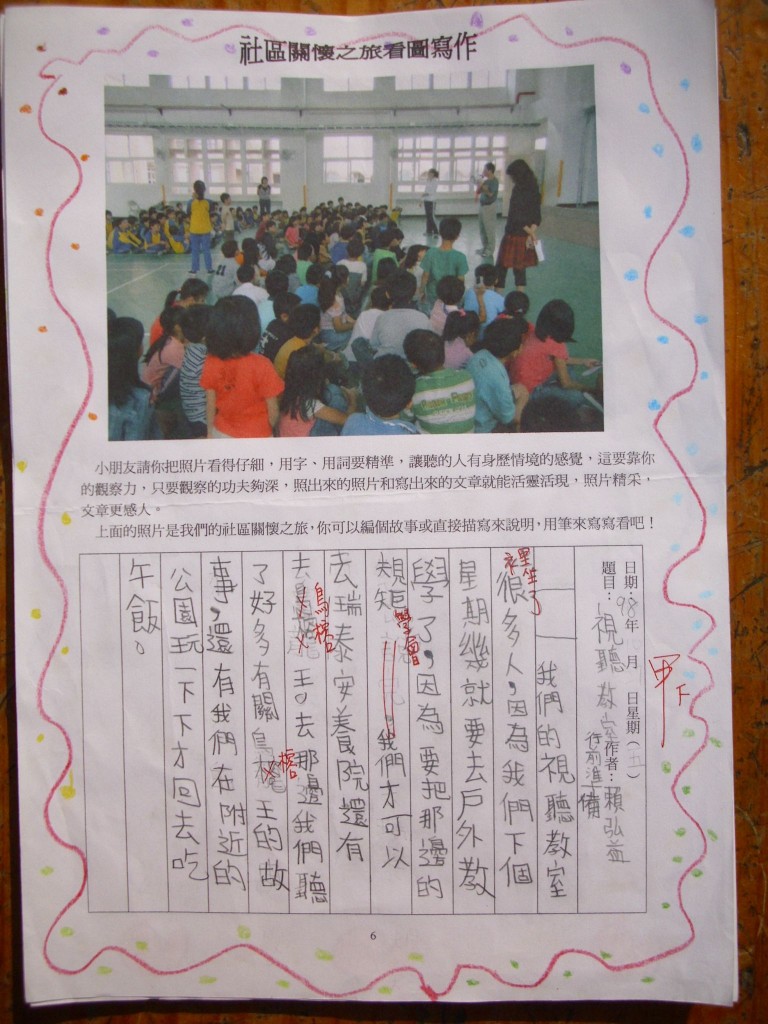 社區關懷之旅看圖寫作
小朋友請你把照片看得仔細,用字、用詞要精準,讓聽的人有身歷情境的感覺,這要靠你
的觀察力,只要觀察的功夫夠深,照出來的照片和寫出來的文章就能活靈活現,照片精采,
文章更感人。
上面的照片是我們的社區關懷之旅,你可以編個故事或直接描寫來說明,用筆來寫寫看吧!
日期:98年 月 日星期( )
題目:視聽教室 作者:賴弘益
行前準備
甲下
我們的視聽教室
裡坐了
很多人,因為我們下個
星期幾就要去戶外教
學了,因為要把那邊的
規矩 。我們才可以
學會
去瑞泰安養院還有
去 王。去那邊我們聽
鳥榕
了好多有關鳥 王的故
榕
事,還有我們在附近的
公園玩一下下才回去吃
午飯。
6